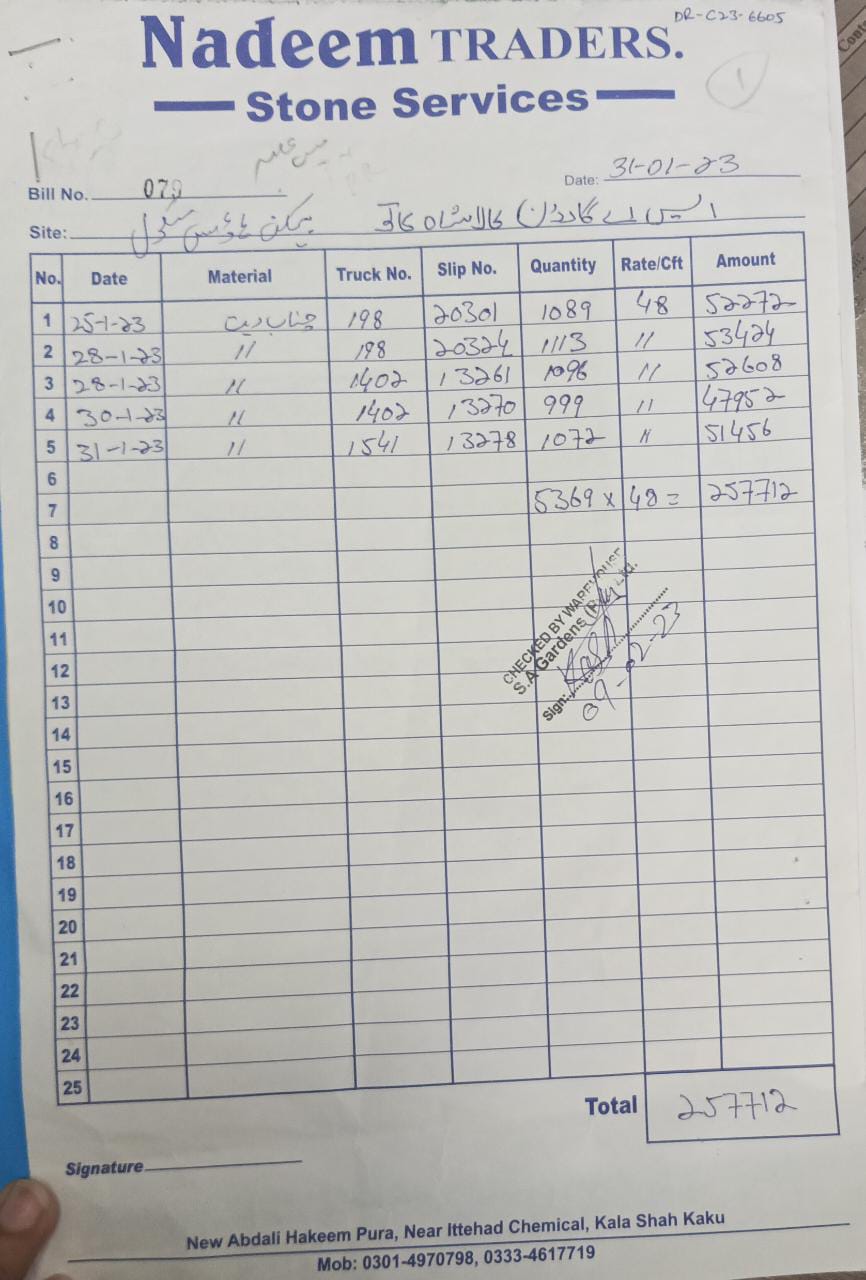 DR-C23-6605
Nadeem TRADERS.
Stone Services
1
Bill No. 079
Date: 31-01-23
Site: ایس اے گارڈن کالاشاہ کاکو بیکن ہاؤس سکول
No. Date Material Truck No. Slip No. Quantity Rate/Cft Amount
1 25-1-23 چناب ریت 198 20301 1089 48 52272
2 28-1-23 // 198 20324 1113 // 53424
3 28-1-23 // 1402 13261 1096 // 52608
4 30-1-23 // 1402 13270 999 // 47952
5 31-1-23 // 1541 13278 1072 // 51456
6
7 5369 x 48 = 257712
8
9
10
11
12
13
14
15
16
17
18
19
20
21
22
23
24
25
CHECKED BY WAREHOUSE
S.A Gardens (Pvt) Ltd.
Sign:
09-02-23
Total 257712
Signature
New Abdali Hakeem Pura, Near Ittehad Chemical, Kala Shah Kaku
Mob: 0301-4970798, 0333-4617719